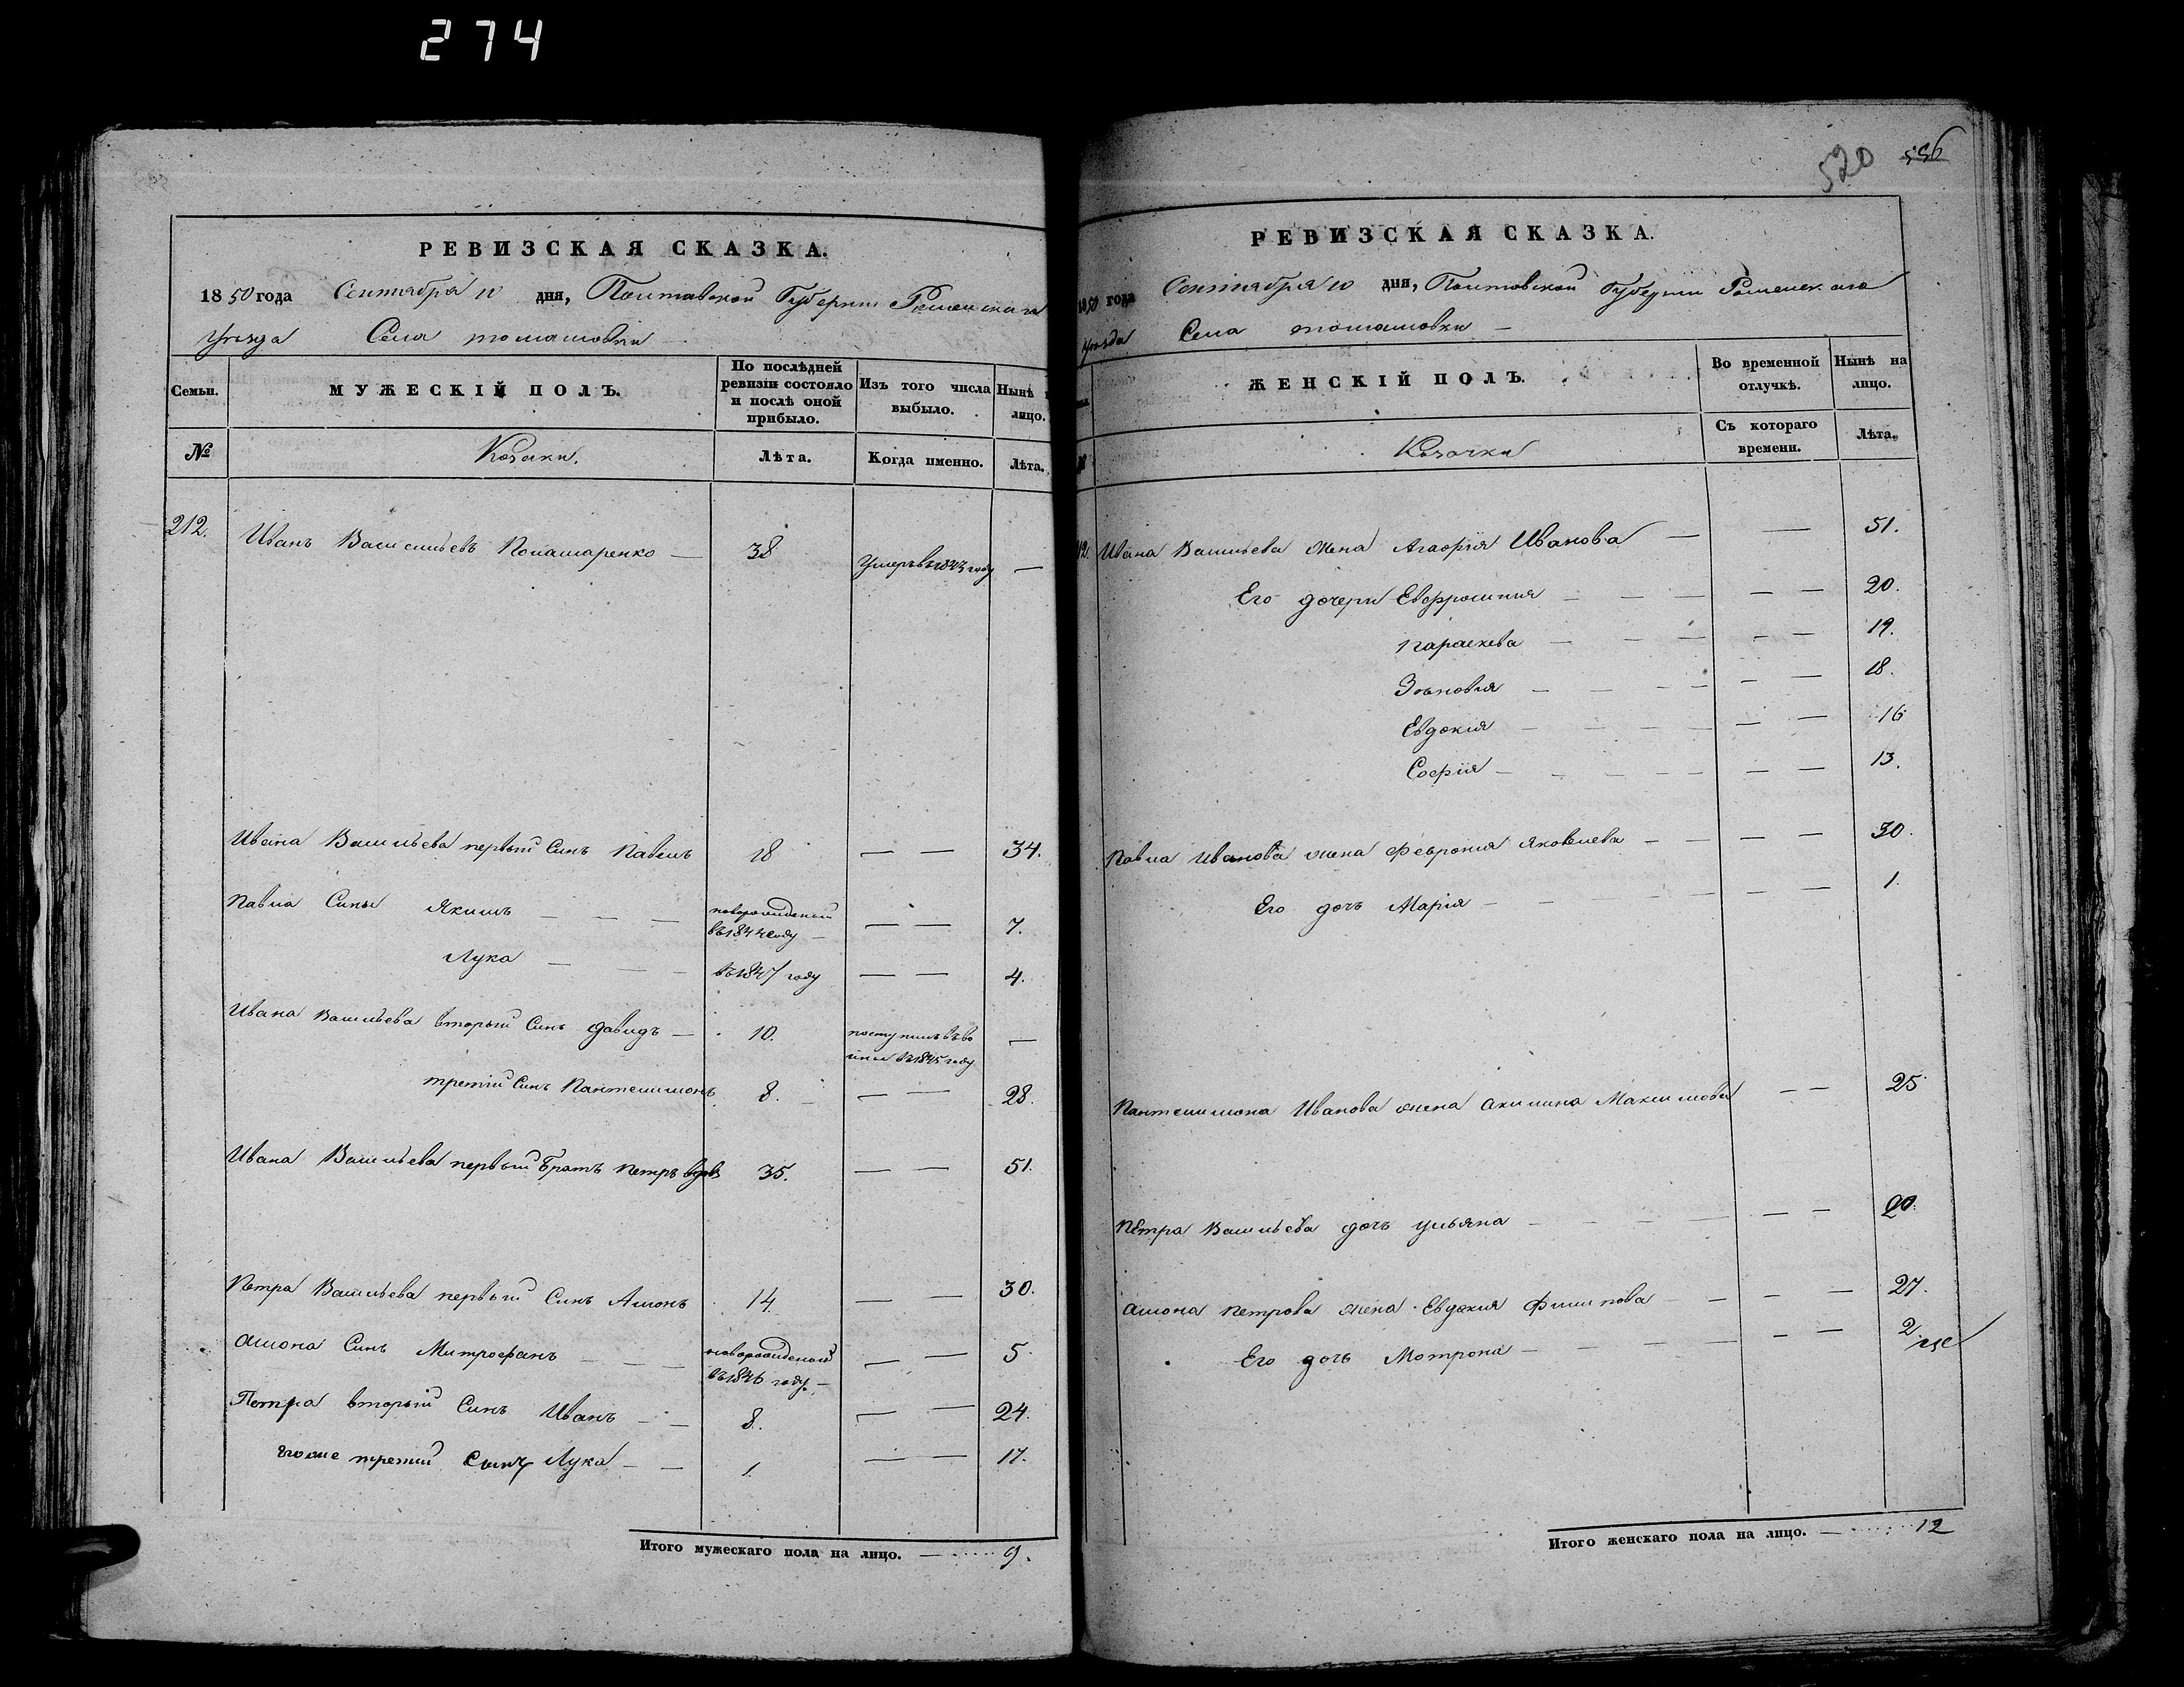 274
РЕВИЗСКАЯ СКАЗКА.
1850 года Сентября 10 дня, Полтавской Губернии Роменскаго
уезда Села томашовки
Семьи.
МУЖЕСКІЙ ПОЛЪ.
По послѣдней ревизіи состояло и послѣ оной прибыло.
Изъ того числа выбыло.
Нынѣ
лицо.
№
Козаки.
Лѣта.
Когда именно.
Лѣта.
212. Иванъ Васильевъ Понамаренко — 38 Умеръ въ 1843 году —
Ивана Васильева первый Синъ Павелъ 18 — — 34.
Павла Сины Якимъ — — — новорожденый въ 1844 году — — — 7.
Лука — — — въ 1847 году — — 4.
Ивана Васильева вторый Синъ давидъ — 10. поступилъ въ во
ины въ 1845 году —
третій Синъ Пантелимонъ 8. — — 28.
Ивана Васильева первый Братъ Петръ вдовъ 35. — — 51.
Петра Васильева первый Синъ Амонъ 14. — — 30.
Амона Синъ Митрофанъ — — — новорожденый въ 1846 году — — — 5.
Петра вторый Синъ Иванъ — — 8. — — 24.
Его же третий Сынъ Лука — — 1. — — 17.
Итого мужескаго пола на лицо. — 9.
520 556
РЕВИЗСКАЯ СКАЗКА.
1850 года Сентября 10 дня, Полтовской Губернии Роменскаго
уезда Села томашовки —
ЖЕНСКІЙ ПОЛЪ.
Во временной отлучкѣ.
Нынѣ на лицо.
Козачки
Съ котораго времени.
Лѣта.
12. Ивана Васильева жена Агафія Иванова — — 51.
Его дочери Евфросиния — — — — — 20.
Параскева — — — — — 19.
Зѣновия — — — — — — 18.
Евдокия — — — — — — 16
Софія — — — — — — — 13.
Павла Иванова жена Феврония Яковлева — — — — 30.
Его дочь Марія — — — — — — 1.
Пантелимона Иванова жена Акилина Максимова — — 25
Петра Васильева дочь Ульяна — — — — — — 20.
Амона Петрова жена Евдокия Филипова — — — — 27.
Его дочь Мотрона — — — — — — 2
Итого женскаго пола на лицо. — 12